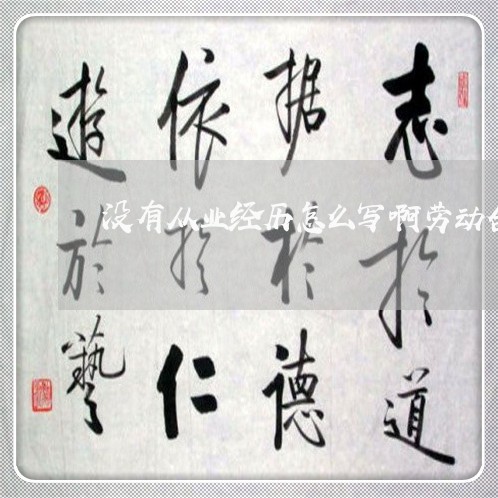 志於道
据於德
依於仁
遊於藝
没有从业经历怎么写啊劳动